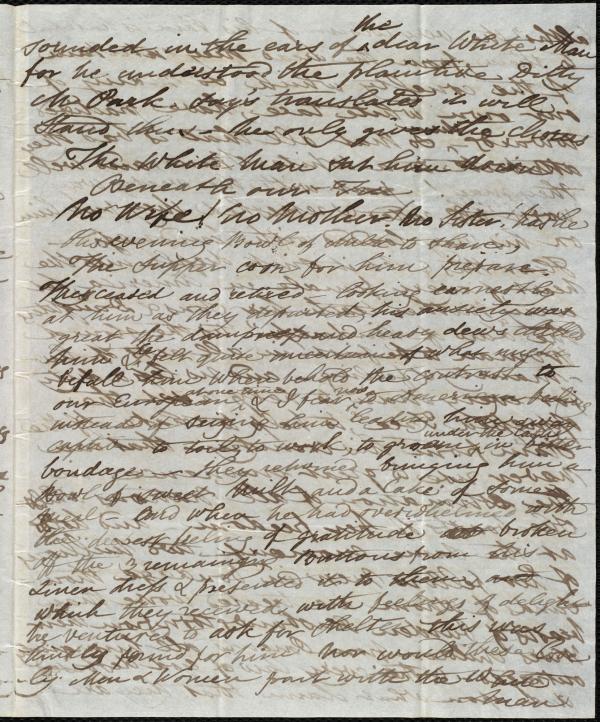 the
sounded in the ears of dear White Man
for he understood the plaintive Ditty
Mr Park says translated it will
stand thus - he only gives the chorus
The White Man sat him down
Beneath our Tree
No Wife! No Mother! No Sister! has he
This evening Bowl of milk to share,
The supper corn for him prepare.
They ceased and retired - looking earnestly
at him as they departed his anxiety was
great the damps and heavy dews
him & he felt quite uncertain of what might
befall him when behold the contrast to
our & I fear
instead of seizing him
captive to toil to work, to groan in
under the lash
bondage - they returned bringing him a
Bowl of sweet milk and a cake of some
meal and when he had overwhelmed with
the deepest feeling of gratitude broken
off the 3 remaining Buttons from his
Linen dress & presented it to them and
which they received with feelings of delight
he ventured to ask for shelter this was
kindly found for him nor would these
ly Men & Women part with the White
man